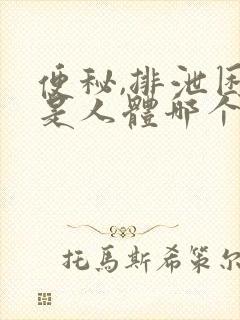 便秘,排泄困
是人體哪个
托馬斯希策尔